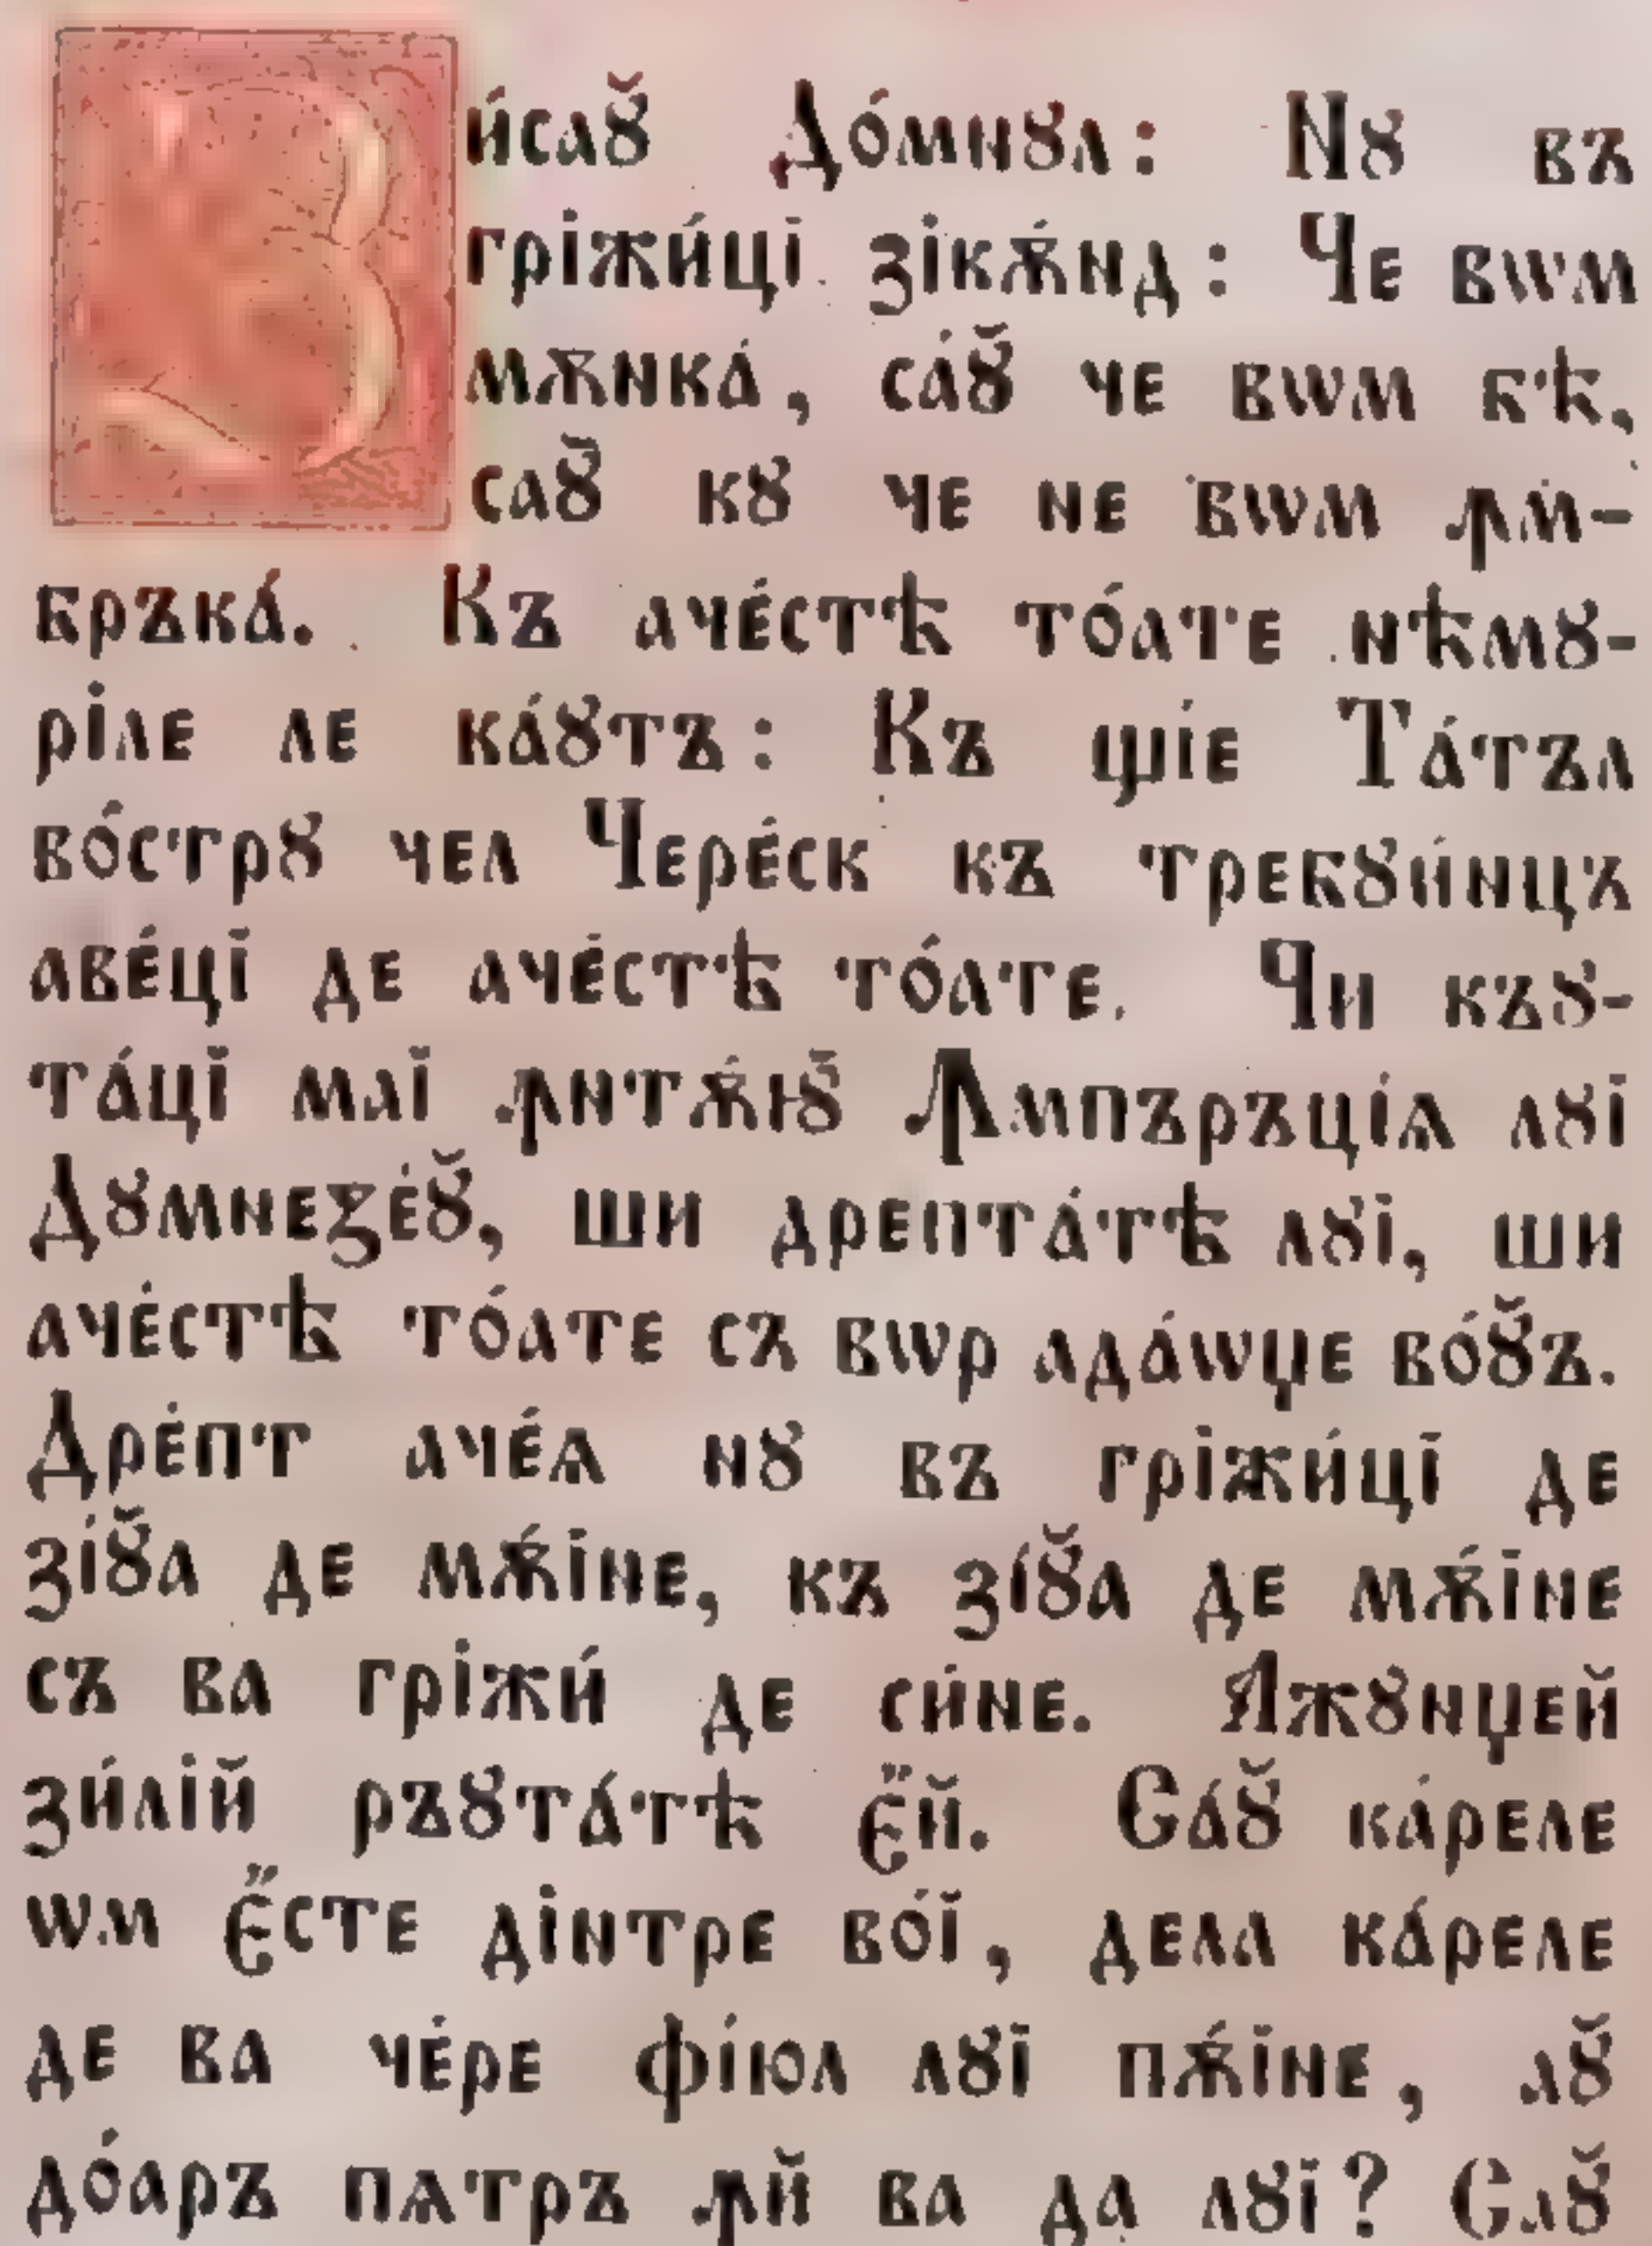 Зи́саꙋ̆ До́мнꙋл: Нꙋ въ
гріжи́ці зікѫ́нд: Че вѡм
мѫнка́, са́ꙋ̆ че вѡм бѣ,
саꙋ̆ кꙋ че не вѡм ꙟм-
бръка́. Къ аче́стѣ то́ате нѣмꙋ-
ріле ле ка́ꙋтъ: Къ щі́е Та́тъл
во́стрꙋ чел Чере́ск къ требꙋи́нцъ
аве́ці де аче́стѣ то́ате. Чи къꙋ-
та́ці маі ꙟнтѫ́юꙋ̆ Ꙟмпъръці́ѧ лꙋі
Дꙋмнеꙁе́ꙋ̆, ши дрепта́тѣ лꙋі, ши
аче́стѣ то́ате съ вѡр ада́ѡџе во́ꙋ̆ъ.
Дре́пт аче́ѧ нꙋ въ гріжи́ці де
зі́ꙋ̆а де мѫ́іне, къ зі́ꙋ̆а де мѫ́іне
съ ва гріжи́ де си́не. Ажꙋнџей
зи́лій ръꙋта́тѣ є҆й. Са́ꙋ̆ ка́реле
ѡм є҆сте дінтре во́ї, дела ка́реле
де ва че́ре фі́юл лꙋї пѫ́іне, аꙋ̆
до́аръ пѧтръ ꙟй ва да лꙋї? Саꙋ̆